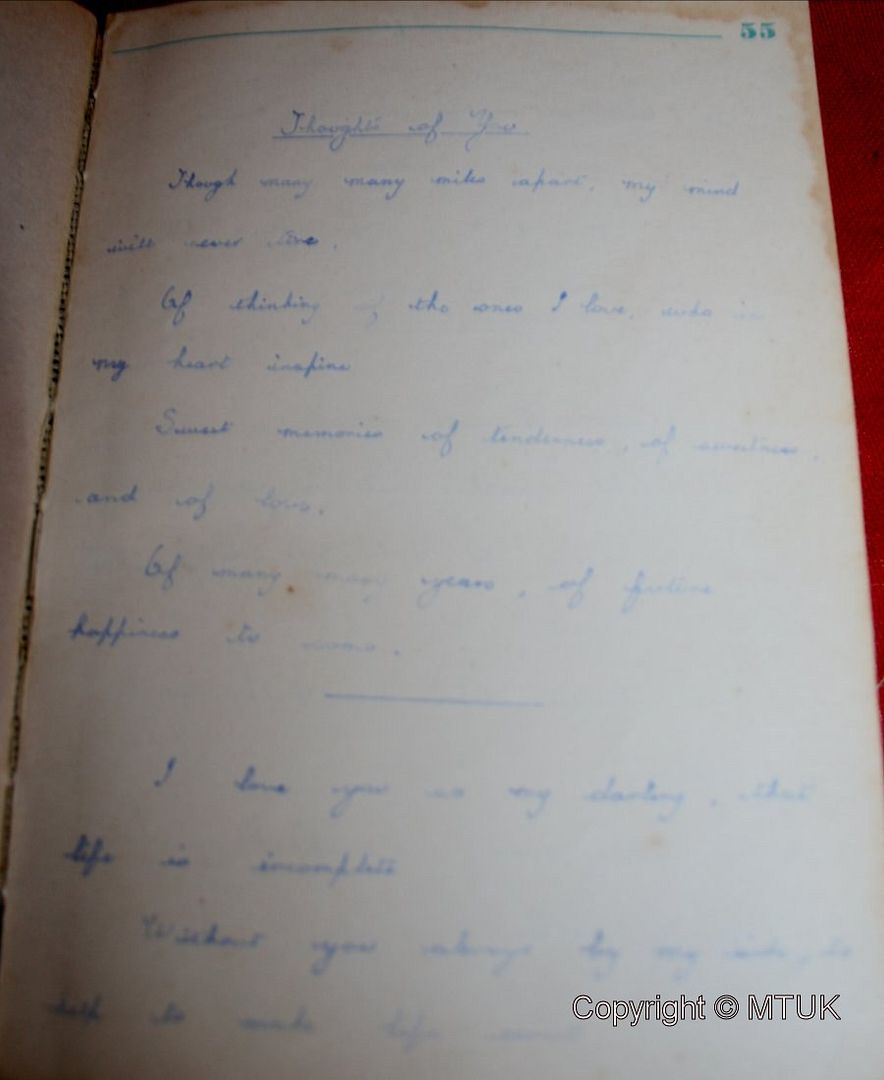 55
Thoughts of You
Though many many miles apart, my mind
will never tire,
Of thinking of the ones I love, who in
my heart inspire
Sweet memories of tenderness, of sweetness,
and of love.
Of many many years, of future
happiness to
I love you so my darling, that
life is incomplete
Without you always by my side, to
help to make life sweet
Copyright © MTUK